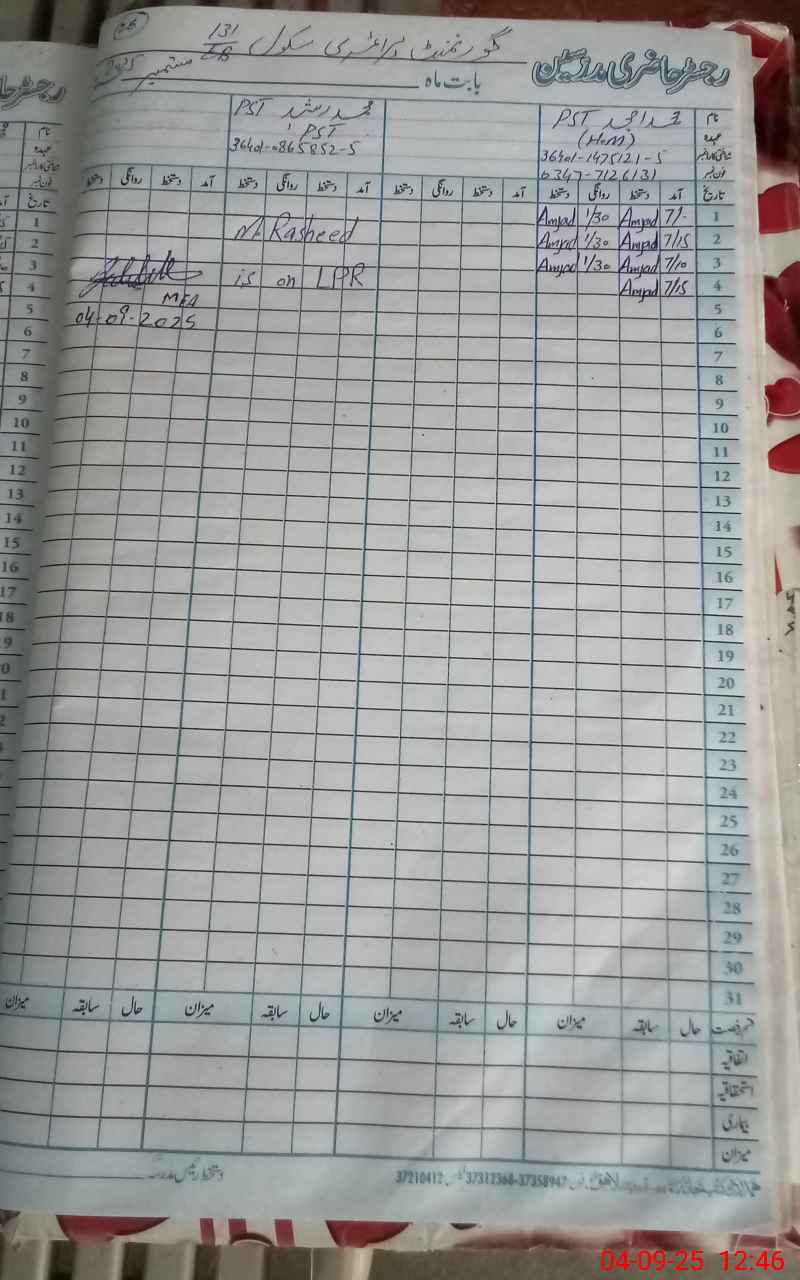 26
گورنمنٹ پرائمری سکول 131/EB
رجسٹر حاضری مدرسین
بابت ماہ ستمبر 2025
نام محمد امجد PST محمد رشید PST
عہدہ (H.M) PST
شناختی کارڈ نمبر 36401-1475121-5 36401-0865852-5
فون نمبر 0347-7126131
تاریخ آمد دستخط روانگی دستخط آمد دستخط روانگی دستخط آمد دستخط روانگی دستخط آمد دستخط روانگی دستخط
1 7/- Amjad 1/30 Amjad
2 7/15 Amjad 1/30 Amjad
Mr Rasheed
3 7/10 Amjad 1/30 Amjad
4 7/15 Amjad
is on LPR
MEA
04-09-2025
5
6
7
8
9
10
11
12
13
14
15
16
17
18
19
20
21
22
23
24
25
26
27
28
29
30
31
قسم رخصت حال سابقہ میزان حال سابقہ میزان حال سابقہ میزان حال سابقہ میزان
اتفاقیہ
استحقاقیہ
بیماری
میزان
دستخط رئیس مدرسہ
37210412 37312368-37358947
04-09-25 12:46